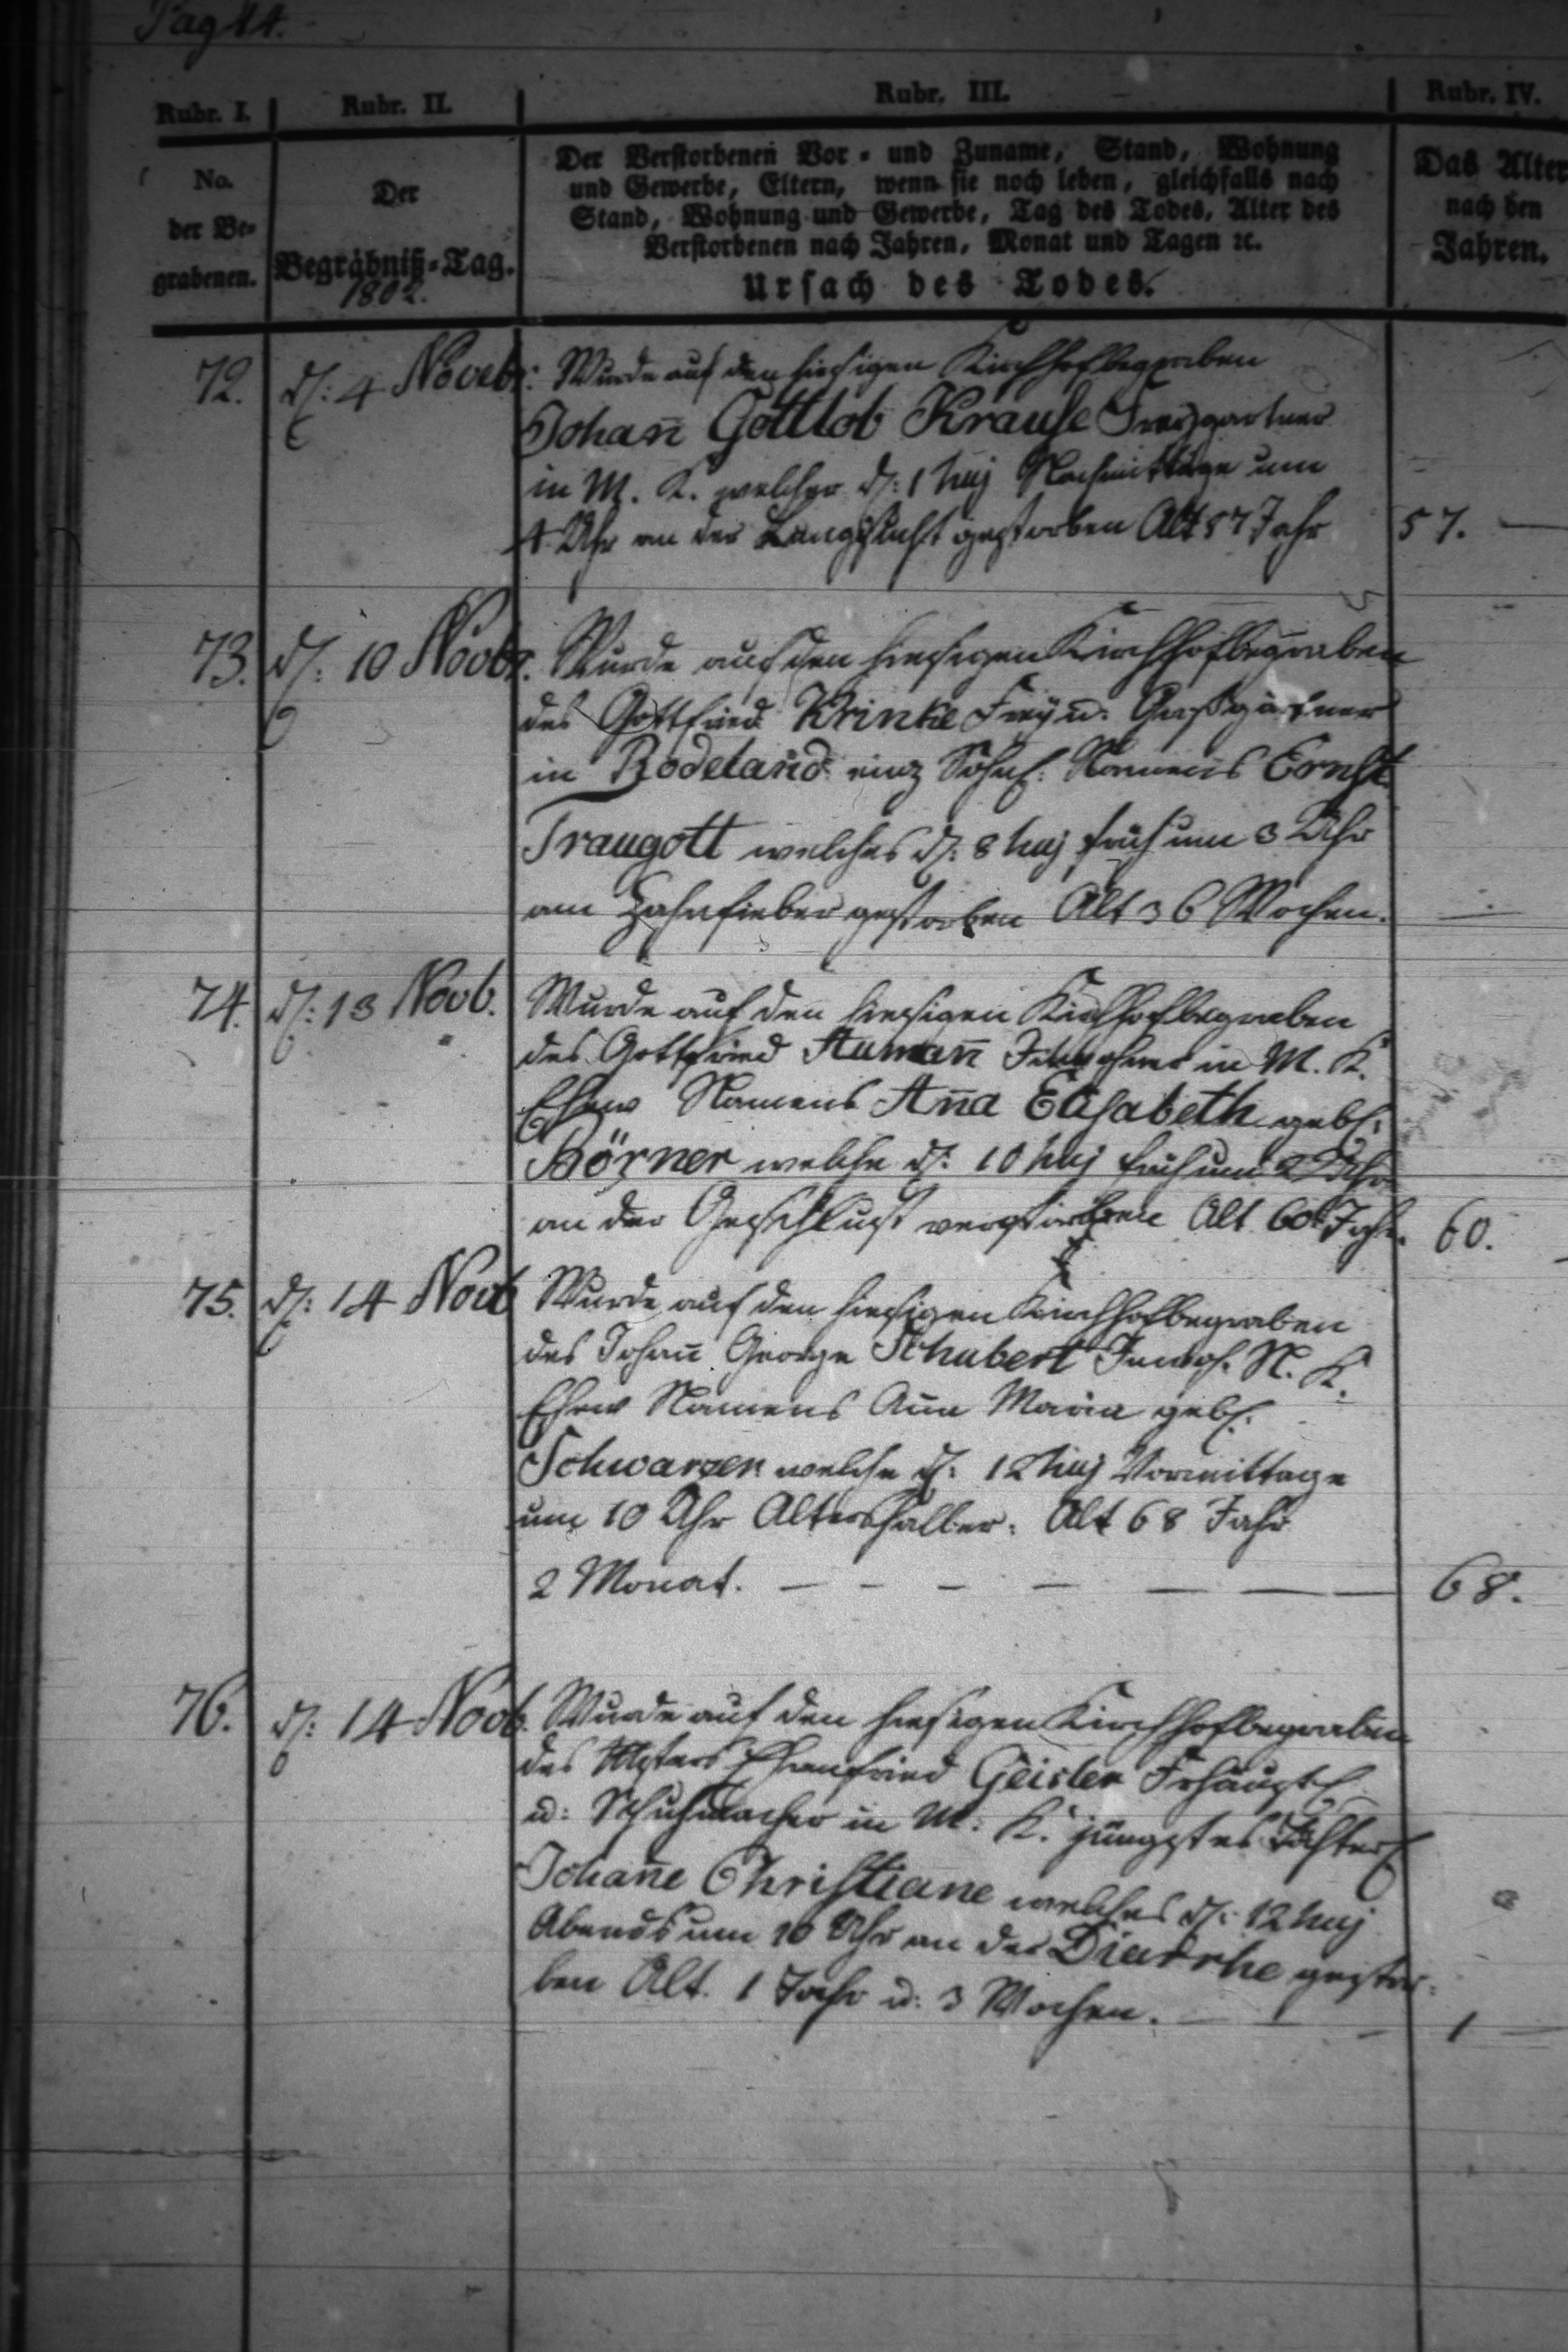 Pag 44.
Rubr. I. Rubr. II. Rubr. III. Rubr. IV.
No. der Be-grabenen.
Der Begräbniß-Tag.
1802.
Der Verstorbenen Vor- und Zuname, Stand, Wohnung
und Gewerbe, Eltern, wenn sie noch leben, gleichfalls nach
Stand, Wohnung und Gewerbe, Tag des Todes, Alter des
Verstorbenen nach Jahren, Monat und Tagen ꝛc.
Ursach des Todes.
Das Alter
nach den
Jahren.
72. d: 4 Novebr: Wurde auf den hiesigen Kirchhof begraben
Johan̄ Gottlob Krause
in M. K. welcher d: 1 huj Nachmittage um
4 Uhr an der gestorben Alt 57 Jahr 57.
73. d: 10 Novbr. Wurde auf den hiesigen Kirchhof begraben
des Gottfried Krinke Frey u.
in Rodeland einz Söhnl: Namens Ernst
Traugott welches d: 8 huj früh um 3 Uhr
am Zahnfieber gestorben Alt 36 Wochen.
74. d: 13 Novb. Wurde auf den hiesigen Kirchhof begraben
des Gottfried Auman̄ Inwohner in M. K.
Ehew Namens An̄a Elisabeth gebl:
Börner welche d: 10 huj früh um 2 Uhr
an der verstorben Alt 60 Jahr. 60.
75. d: 14 Novb Wurde auf den hiesigen Kirchhof begraben
des Johan̄ George Schubert Inwoh. N. K.
Ehew Namens An̄a Maria gebl.
Schwarzer welche d: 12 huj Vormittage
um 10 Uhr Altershalber. Alt 68 Jahr
2 Monat. — — — — — — 68.
76. d: 14 Novb. Wurde auf den hiesigen Kirchhof begraben
des Msters Ehrenfried Geisler
u: Schuhmacher in M. K. jüngstes Töchterl
Johan̄e Christiane welches d: 12 huj
Abends um 10 Uhr an der Diarrhe gestor-
ben Alt. 1 Jahr u: 3 Wochen. 1